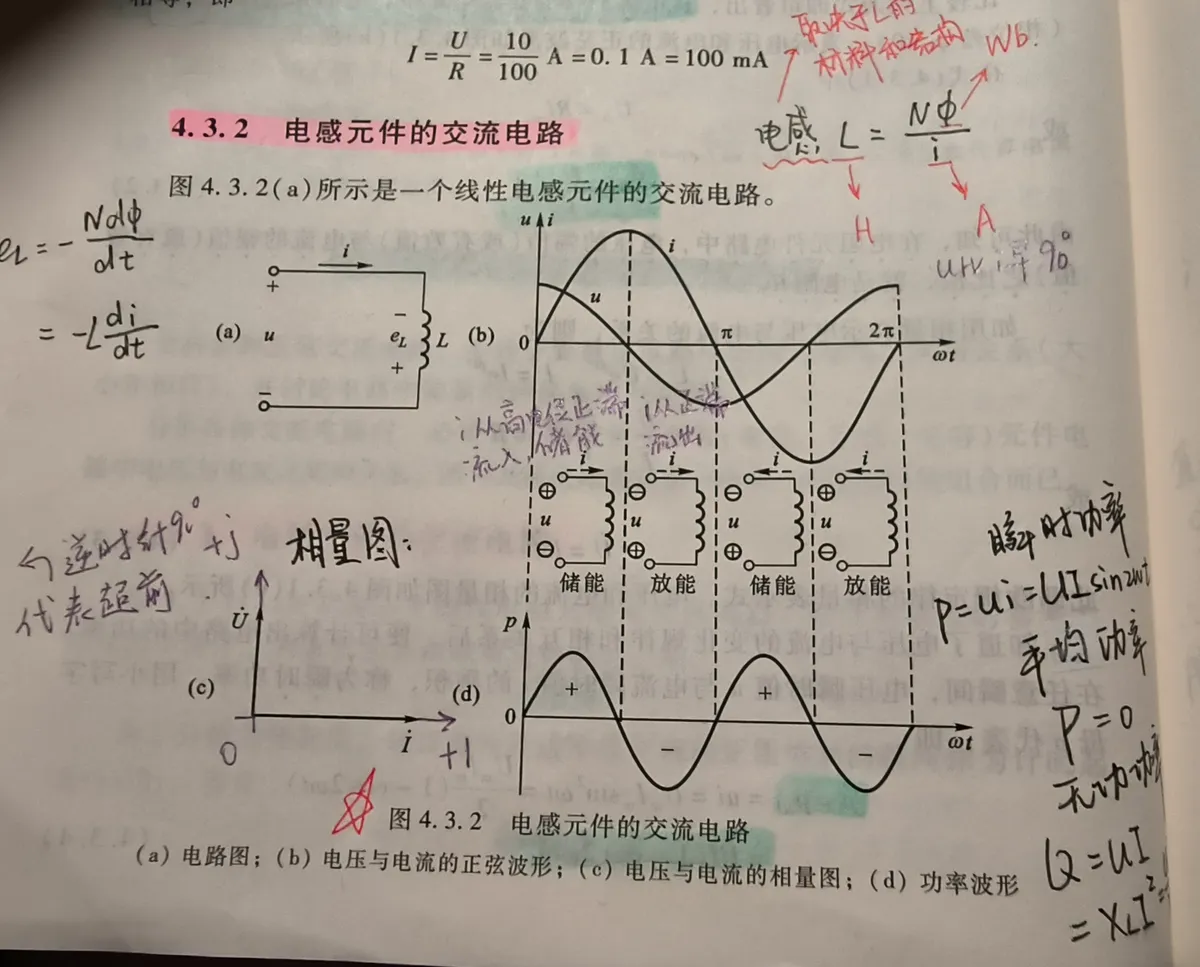 I = U/R = 10/100 A = 0.1 A = 100 mA
取决于L的
材料和结构
Wb.
4.3.2 电感元件的交流电路
电感 L = NΦ/i
H
A
图 4.3.2(a)所示是一个线性电感元件的交流电路。
e_L = - Ndφ/dt
= -L di/dt
(a)
i
+
u
-
-
e_L
+
L
(b)
u
i
i
u
0
π
2π
ωt
90°
i从高电位正端
流入,储能
i从正端
流出
i
⊕
u
⊖
储能
i
⊖
u
⊕
放能
i
⊖
u
⊕
储能
i
⊕
u
⊖
放能
逆时针90°
代表超前
+j
相量图:
(c)
U̇
0
İ
+1
(d)
p
0
+
-
+
-
ωt
瞬时功率
P=ui=UIsin2ωt
平均功率
P=0
无功功率
Q=UI
=X_L I²
图 4.3.2 电感元件的交流电路
(a) 电路图;(b) 电压与电流的正弦波形;(c) 电压与电流的相量图;(d) 功率波形